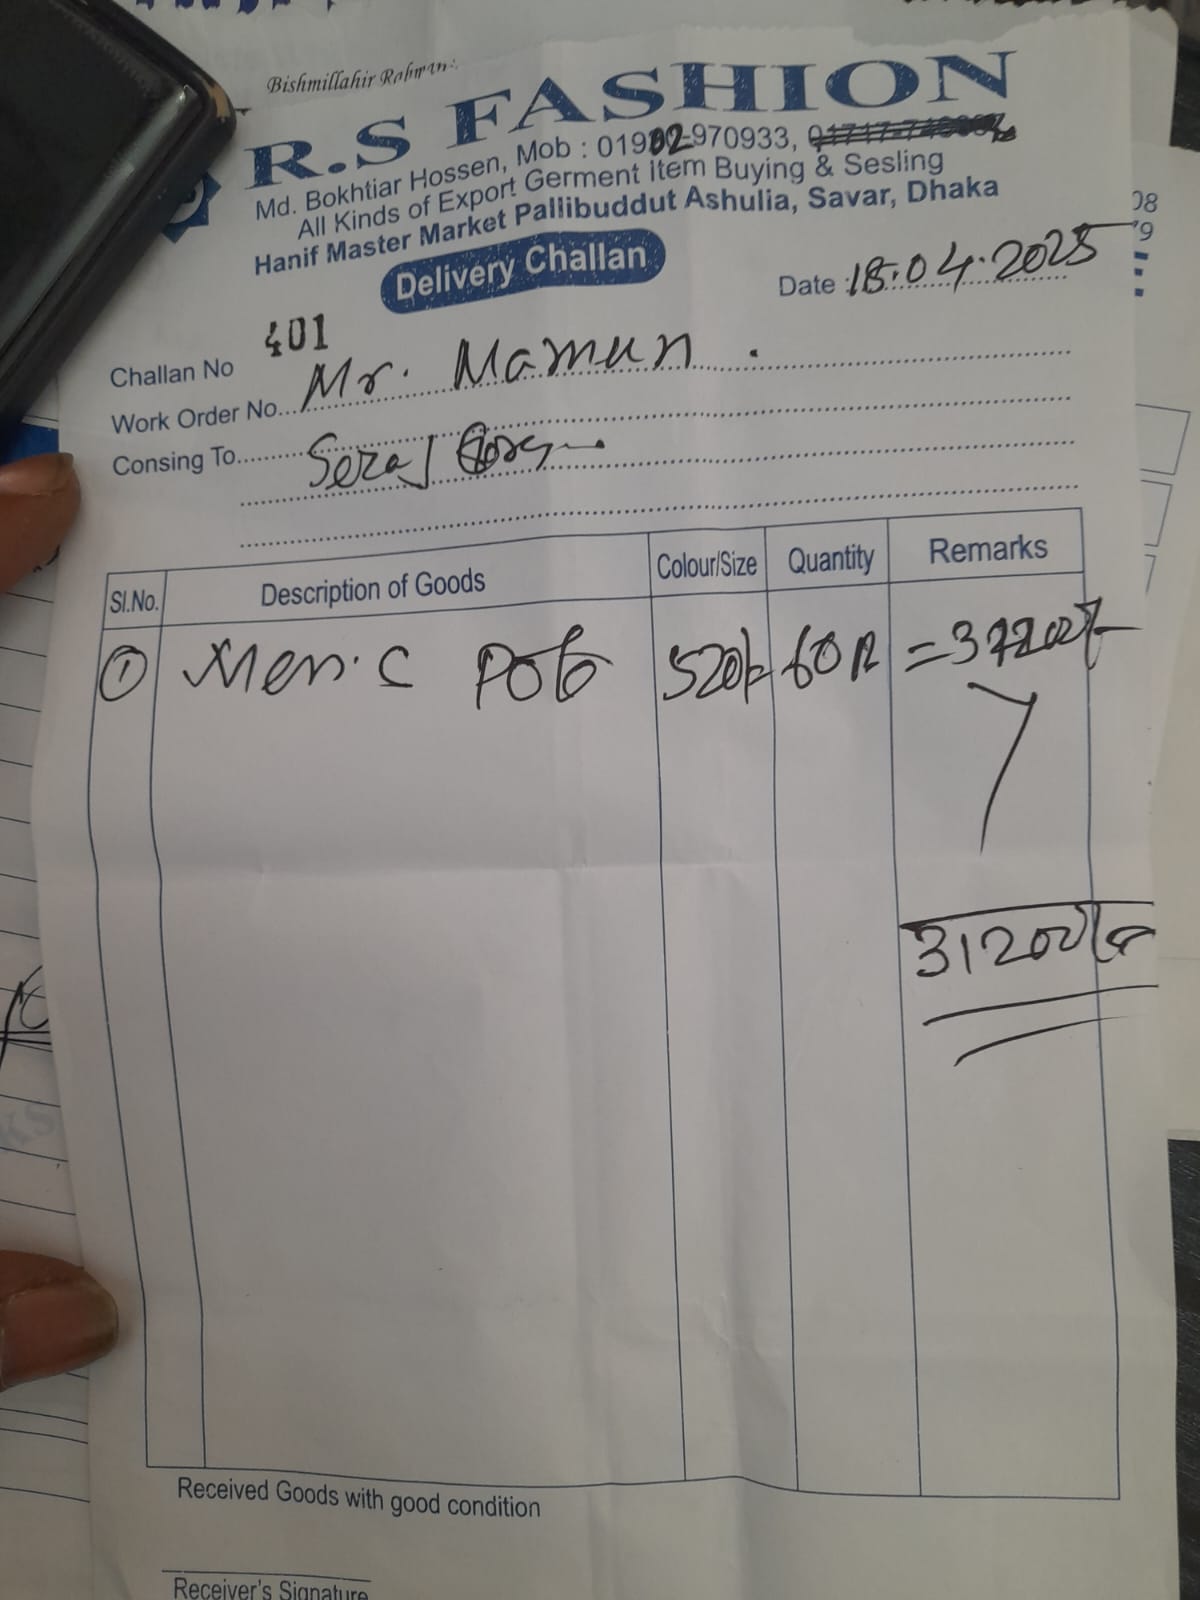 Bishmillahir Rahman
R.S FASHION
Md. Bokhtiar Hossen, Mob : 01902-970933,
All Kinds of Export Germent Item Buying & Sesling
Hanif Master Market Pallibuddut Ashulia, Savar, Dhaka
Delivery Challan
Date : 18.04.2025
Challan No 401
Work Order No... Mr. Mamun
Consing To... Seraj
Sl.No. Description of Goods Colour/Size Quantity Remarks
① Men.s Polo 520/- 60 = 31200/-
31200/-
Received Goods with good condition
Receiver's Signature
08
79